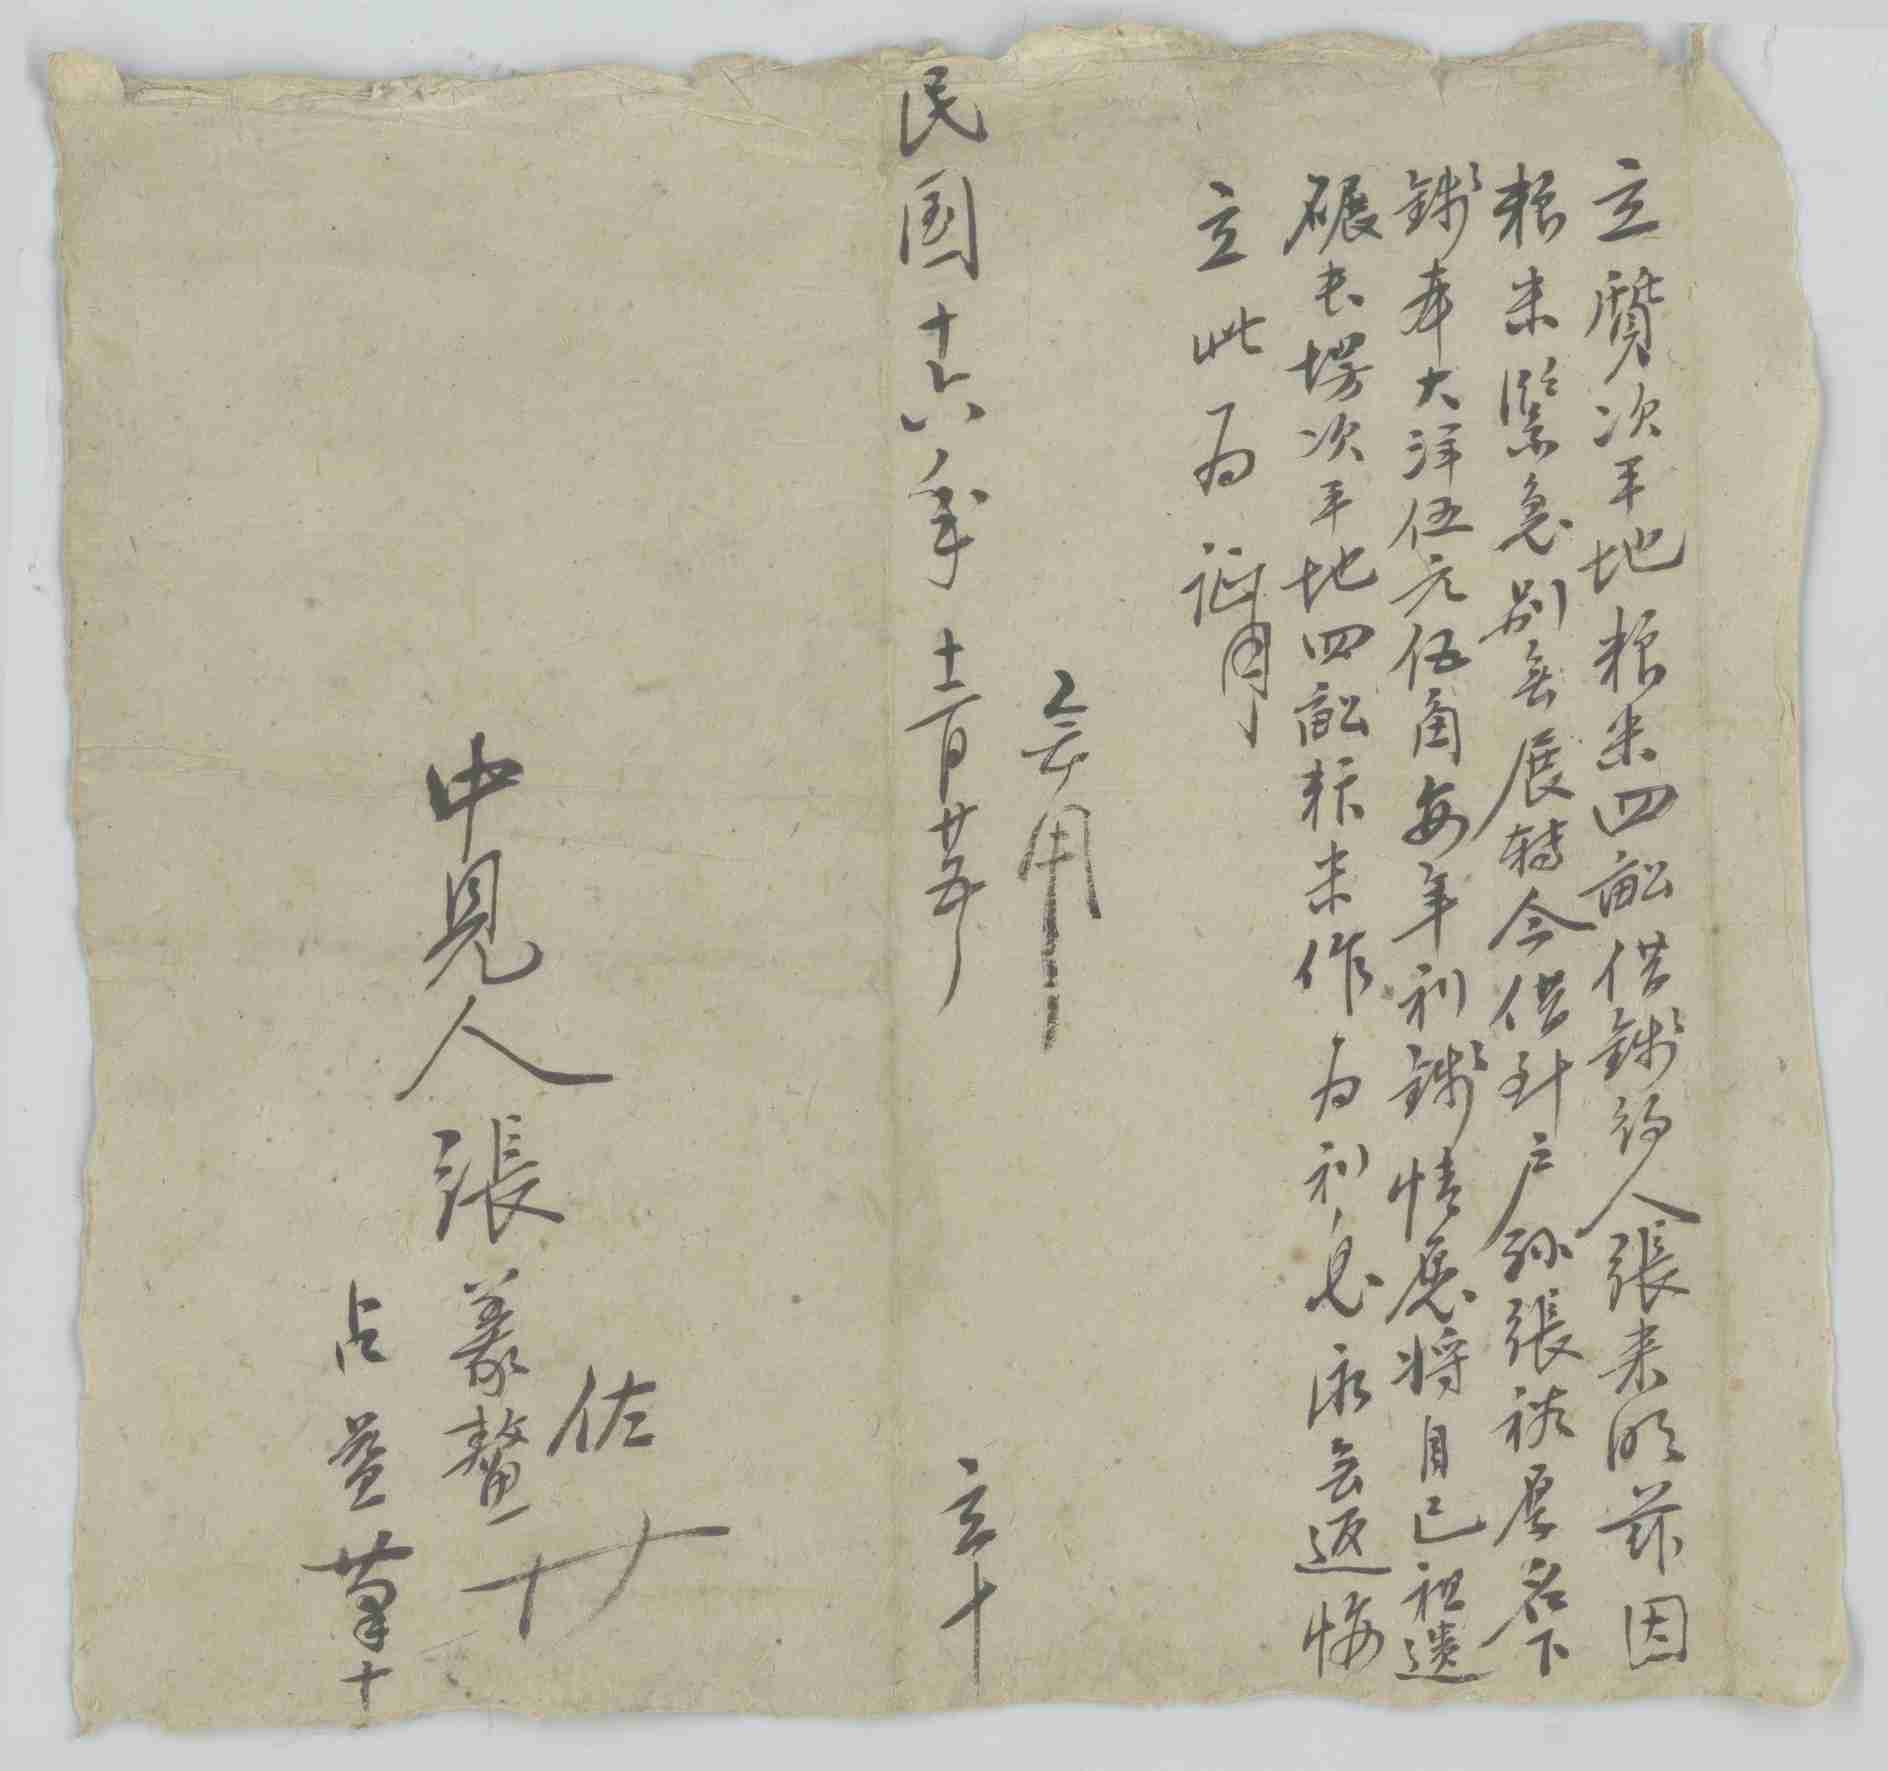 立質次平地粮米四畝借錢約人張来明茲因
粮米緊急别無展轉今借到户孫張禄厚名下
錢本大洋伍元伍角每年利錢情愿將自己祖遺
碾長塄次平地四畝粮米作为利息永無返悔
立此为証用
無用
民国十六年十二月廿五
立十
佐
中見人張羲鰲十
占益筆十